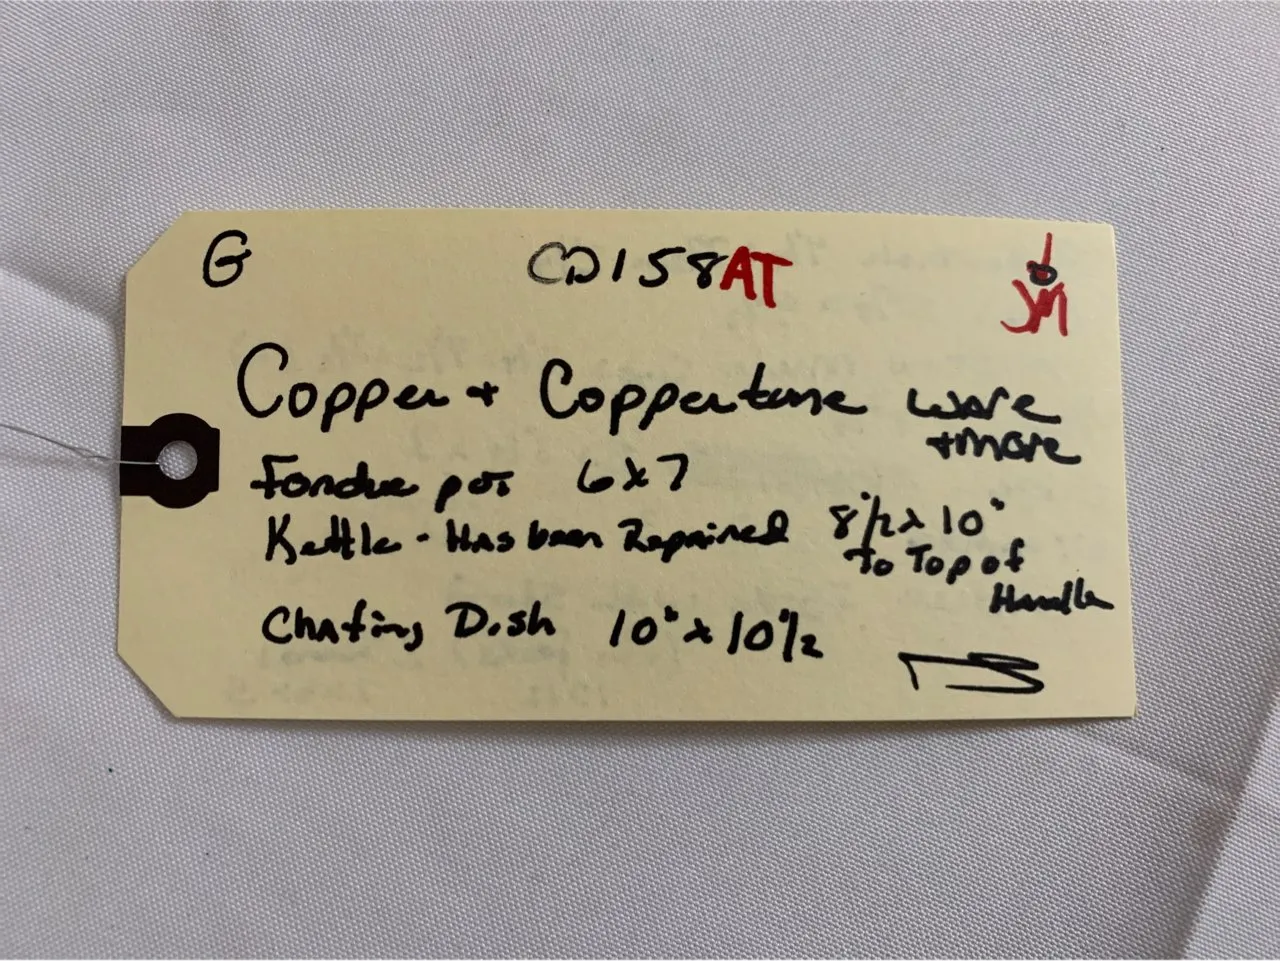 G CD158AT JM
Copper + Coppertone ware
+more
Fondue pot 6x7
Kettle - Has been Repaired 8"1/2 x 10"
to Top of
Handle
Chafing Dish 10" x 10"1/2